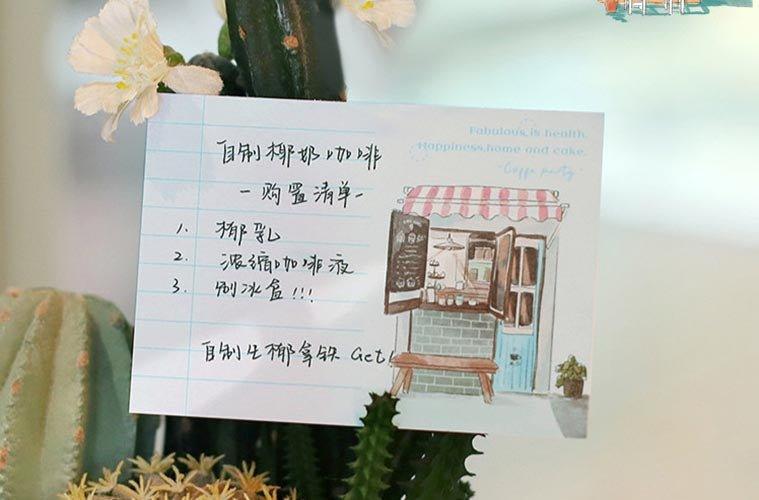 Fabulous is health.
Happiness, home and cake.
"Coffe party"
自制椰奶咖啡
-购置清单-
1. 椰乳
2. 浓缩咖啡液
3. 制冰盒!!!
自制生椰拿铁 Get!